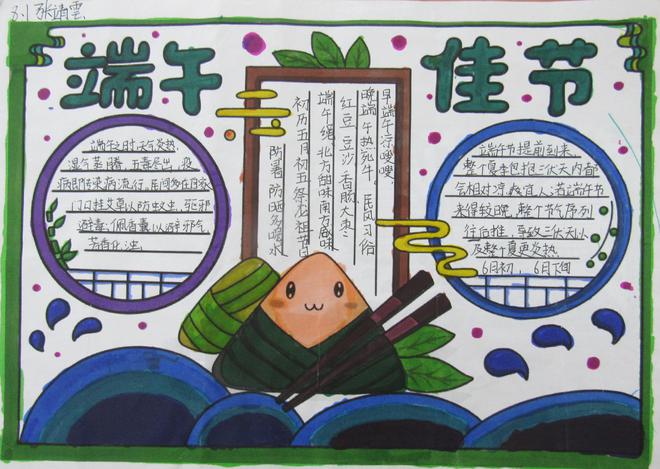 3.1 张靖雲
端午
佳节
端午之时,天气炎热,
湿气蒸腾,五毒尽出,疫
病即传染病流行,民间多在自家
门口挂艾草以防虫蚊,驱邪
避毒;佩香囊以避邪气,
芳香化浊。
早端午凉嗖嗖
晚端午热死牛,民风习俗
红豆豆沙香肠大枣
端午粽北方甜味南方咸味
初历五月初五祭龙祖节日
防暑防晒多喝水
端午节提前到来,
整个夏季包括三伏天内都
会相对凉爽宜人;若端午节
来得较晚,整个节气序列
往后推,导致三伏天以
及整个夏更炎热
6月初,6月下旬